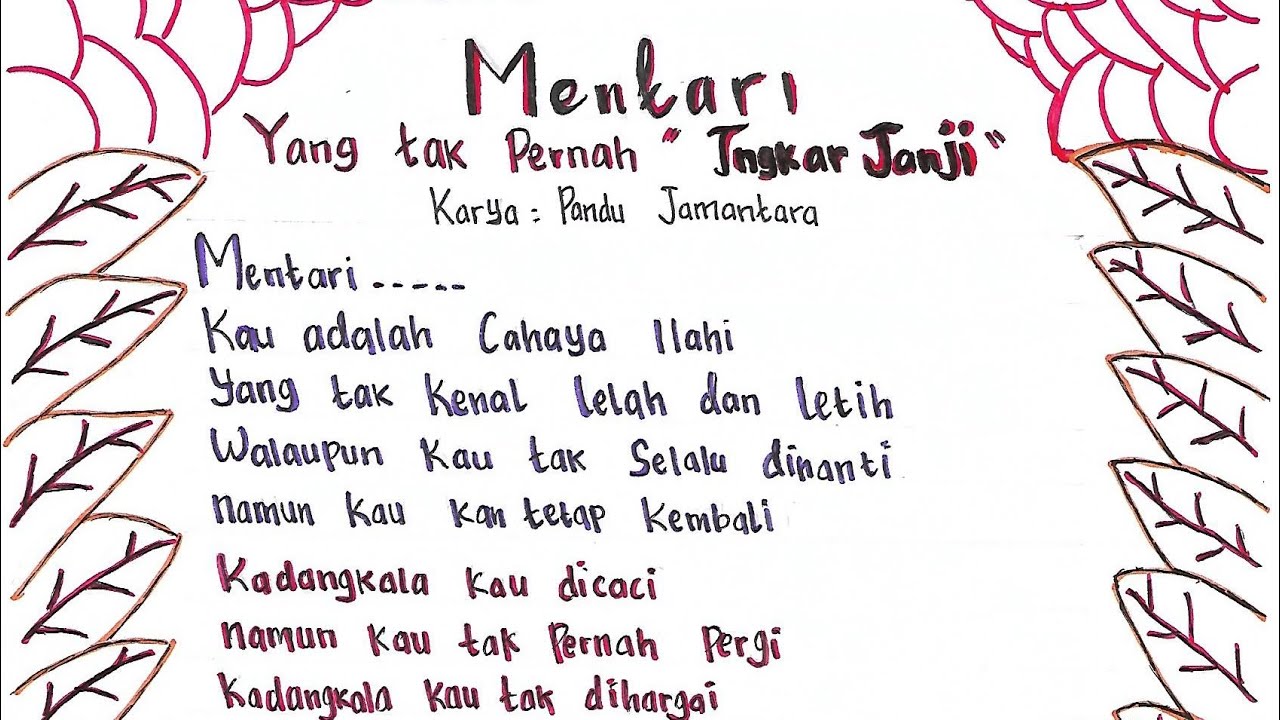 Mentari
Yang tak Pernah "Ingkar Janji"
Karya = Pandu Jamantara
Mentari.....
Kau adalah Cahaya Ilahi
Yang tak Kenal lelah dan letih
Walaupun Kau tak Selalu dinanti
Namun Kau kan tetap Kembali
Kadangkala Kau dicaci
Namun Kau tak Pernah Pergi
Kadangkala Kau tak dihargai